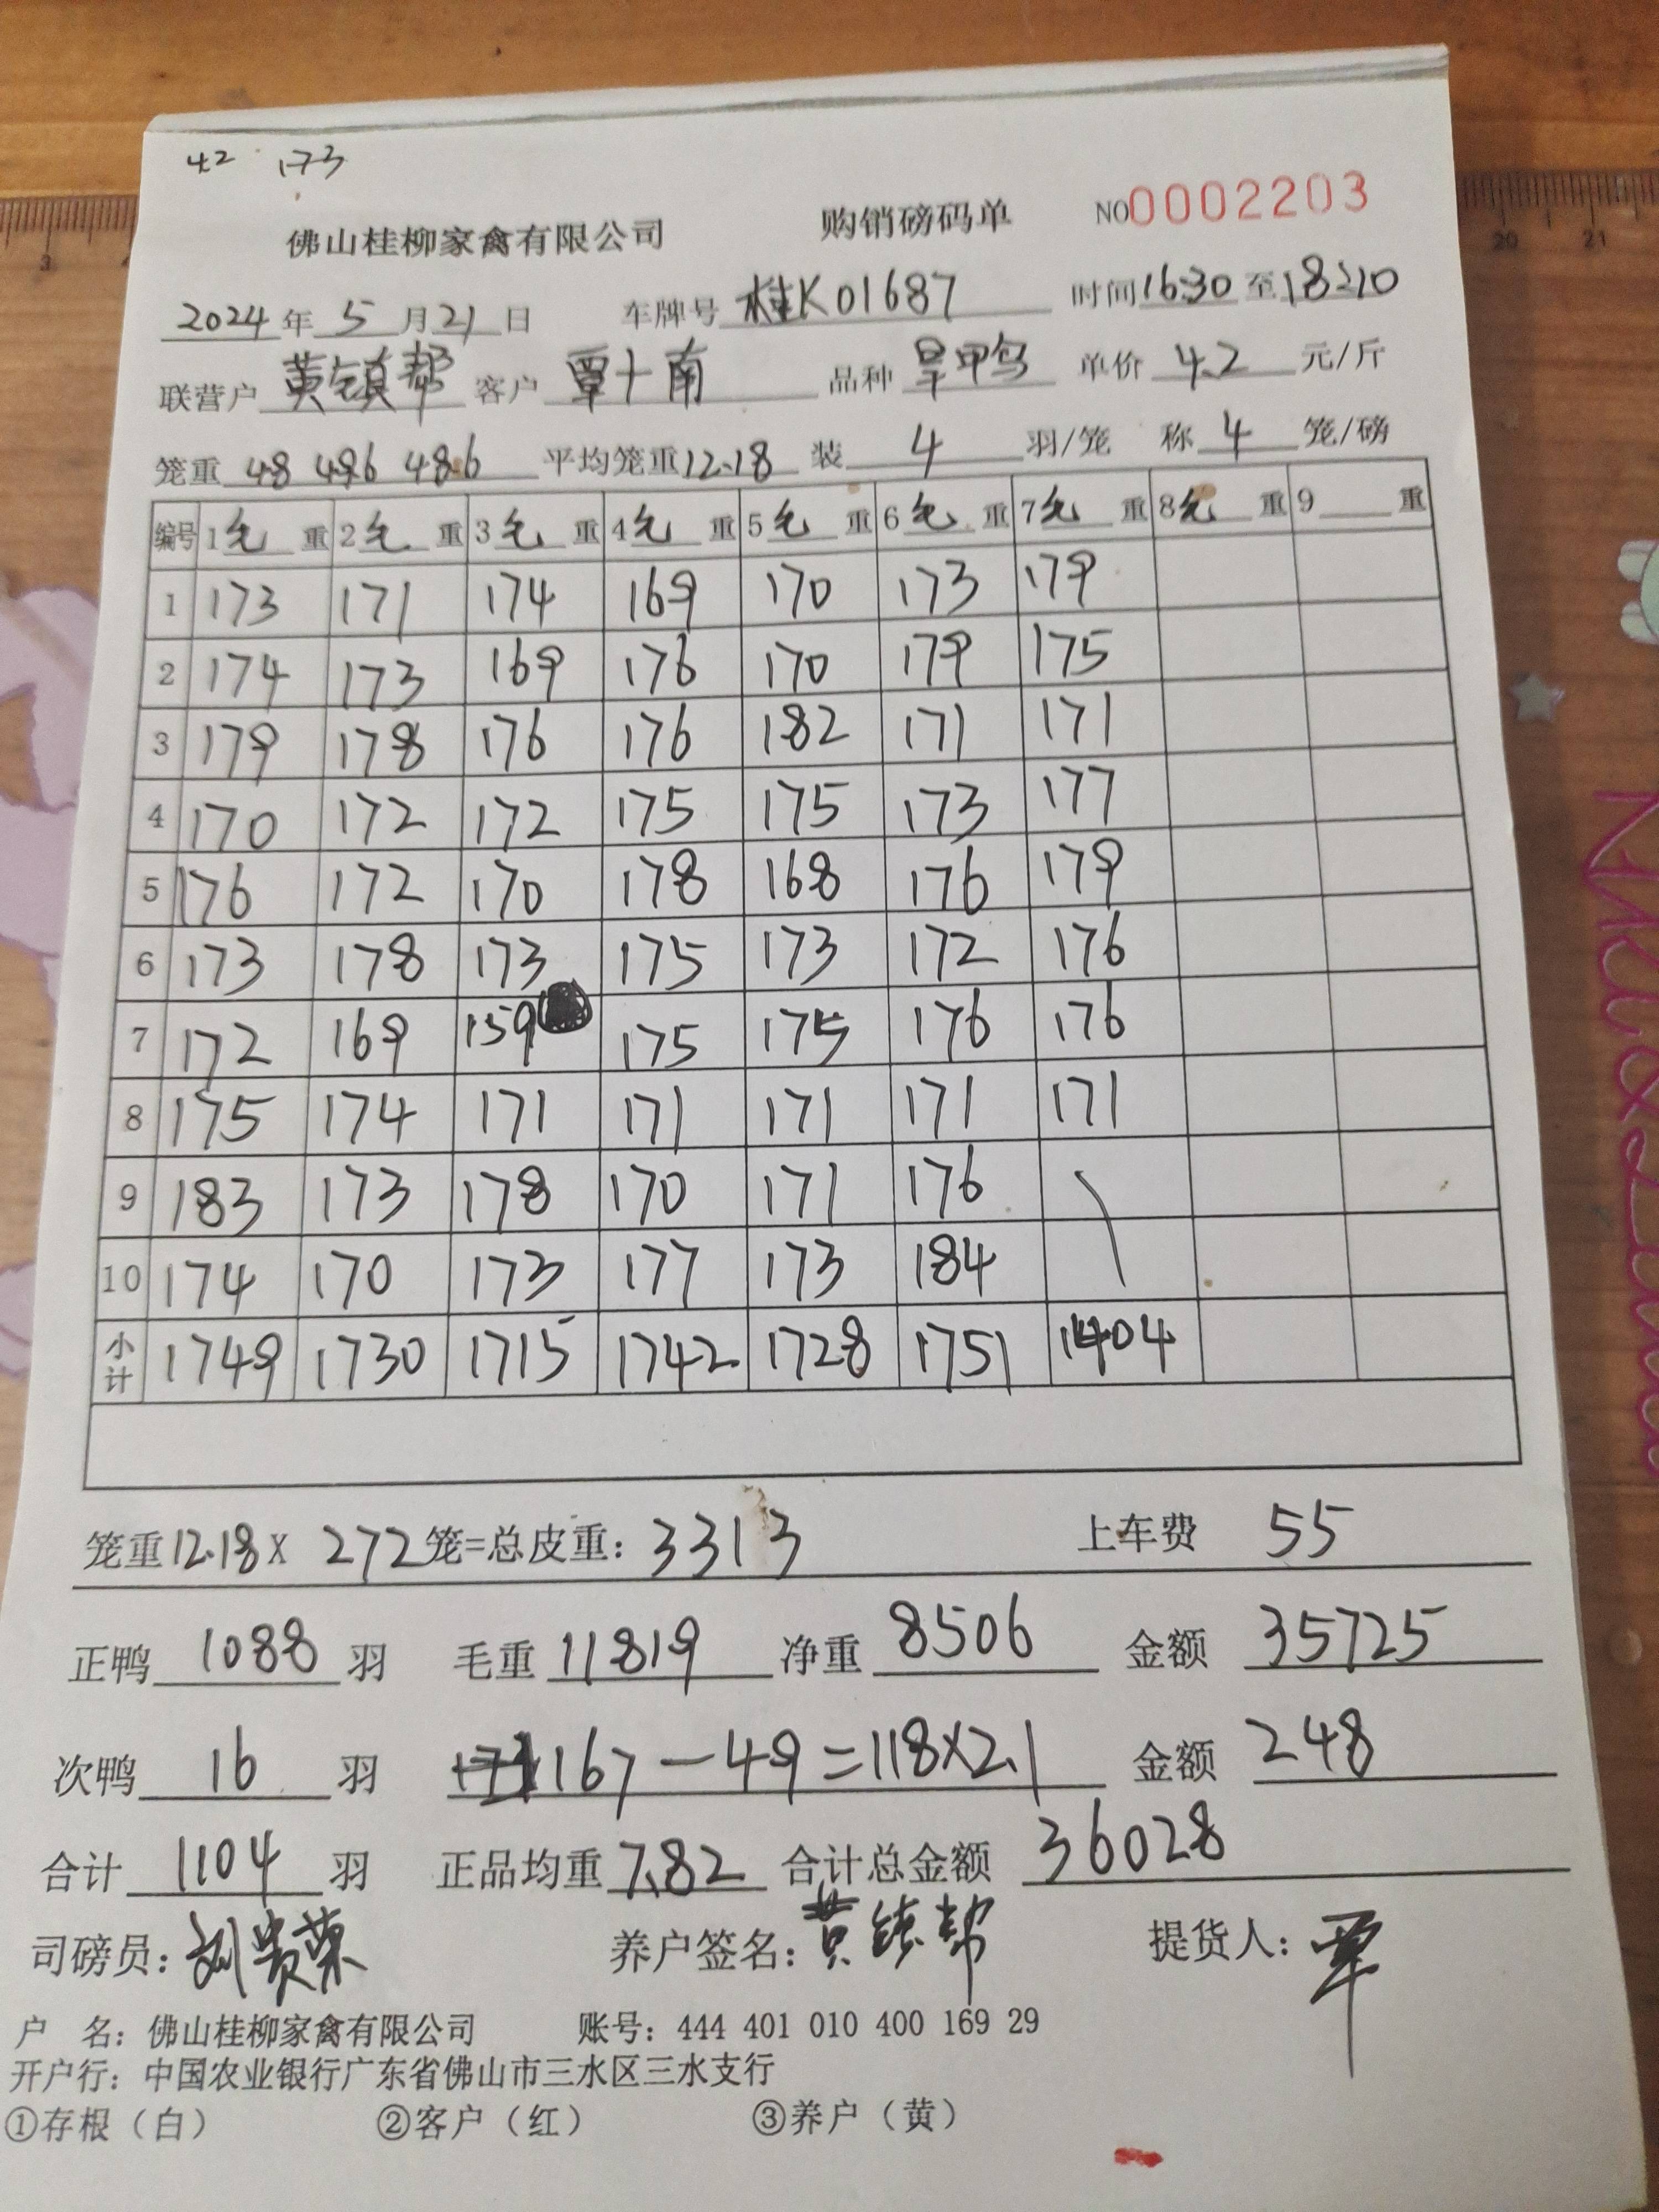 42 173
佛山桂柳家禽有限公司 购销磅码单 NO0002203
2024年5月21日 车牌号 桂K01687 时间16:30至18:210
联营户 黄镇帮 客户 覃十南 品种 旱鸭 单价 4.2 元/斤
笼重 48 48.6 48.6 平均笼重12.18 装 4 羽/笼 称 4 笼/磅
编号 1毛重 2毛重 3毛重 4毛重 5毛重 6毛重 7毛重 8毛重 9 重
1 173 171 174 169 170 173 179
2 174 173 169 176 170 179 175
3 179 178 176 176 182 171 171
4 170 172 172 175 175 173 177
5 176 172 170 178 168 176 179
6 173 178 173 175 173 172 176
7 172 169 159 175 175 176 176
8 175 174 171 171 171 171 171
9 183 173 178 170 171 176
10 174 170 173 177 173 184
小计 1749 1730 1715 1742 1728 1751 1404
笼重12.18X 272笼=总皮重：3313 上车费 55
正鸭 1088 羽 毛重 11819 净重 8506 金额 35725
次鸭 16 羽 167-49=118X2.1 金额 248
合计 1104 羽 正品均重 7.82 合计总金额 36028
司磅员：刘贵荣 养户签名：黄镇帮 提货人：覃
户 名：佛山桂柳家禽有限公司 账号：444 401 010 400 169 29
开户行：中国农业银行广东省佛山市三水区三水支行
①存根（白） ②客户（红） ③养户（黄）